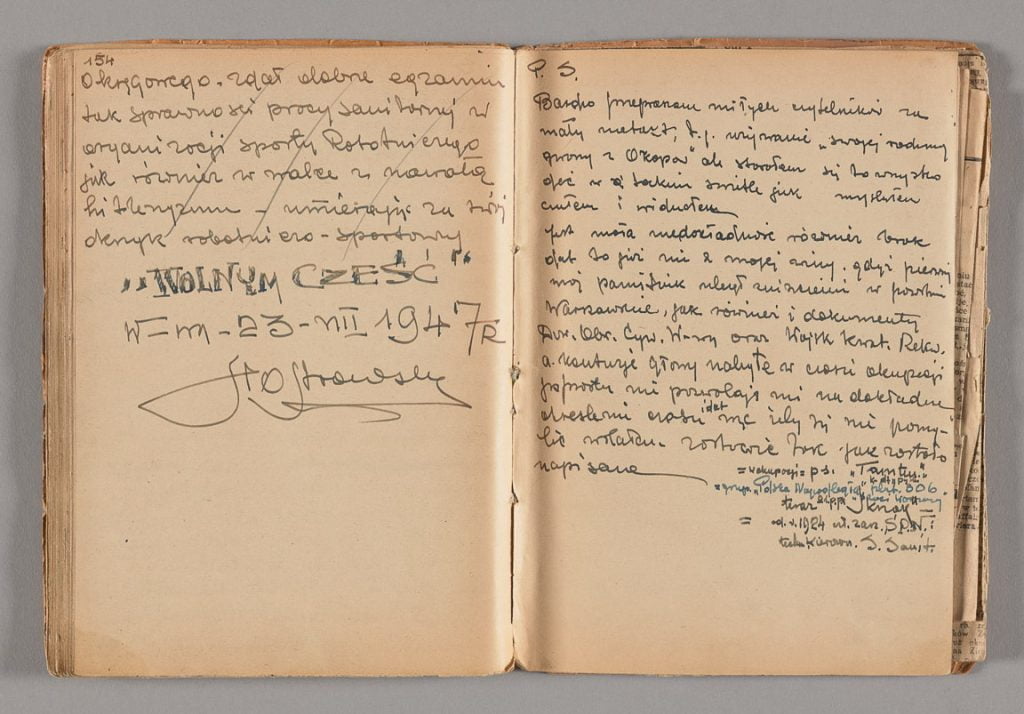 154
Okręgowego. zdał dobrze egzamin
tak sprawności pracy sanitarnej w
organizacji sportu Robotniczego
jak również w walce z nawałą
hitleryzmu - umierając za swój
okrzyk robotniczo-sportowy
"WOLNYM CZEŚĆ"
W-wa - 23 - VII 1947 R
StOstrowski
P. S.
Bardzo przepraszam miłych czytelników za
mały t.j. używanie "swojej rodzinnej
gwary z Okopów" ale starałem się to wszystko
w takim świetle jak myślałem
czułem i widziałem
jest mała niedokładność również brak
dat to już nie z mojej winy, gdyż pierwszy
mój pamiętnik uległ zniszczeniu w powstaniu
Warszawskie, jak również i dokumenty
Obr. Cyw. W-wy oraz Wojsk Kwat. Rekw.
a kontuzje głowy nabyte w czasie okupacji
poprostu nie pozwalają mi na dokładne
określenie czasu i dat więc żeby się nie pomy-
lić wolałem zostawić tak jak zostało
napisane
= w okupacji = ps. "Tamten"
= grupa "Polska Niepodległa" 306
teraz
= od. r. 1924 czł. zarz. S.P.N. i
Kierown. S. Sanit.